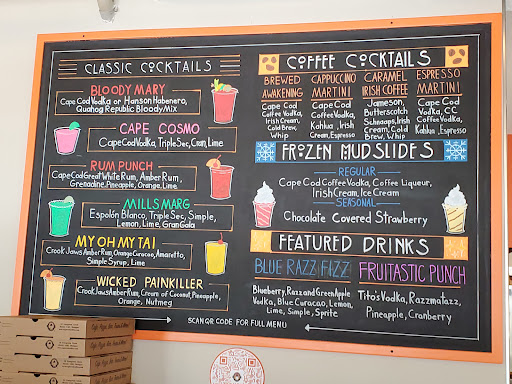 CLASSIC COCKTAILS
BLOODY MARY
Cape Cod Vodka or Hanson Habenero,
Quahog Republic Bloody Mix
CAPE COSMO
Cape Cod Vodka, Triple Sec, Cran, Lime
RUM PUNCH
Cape Cod Great White Rum, Amber Rum,
Grenadine, Pineapple, Orange, Lime
MILLS MARG
Espolón Blanco, Triple Sec, Simple,
Lemon, Lime, Gran Gala
MY OH MY TAI
Crook Jaws Amber Rum, Orange Curacao, Amaretto,
Simple Syrup, Lime
WICKED PAINKILLER
Crook Jaws Amber Rum, Cream of Coconut, Pineapple,
Orange, Nutmeg
COFFEE COCKTAILS
BREWED
AWAKENING
Cape Cod
Coffee Vodka,
Irish Cream,
Cold Brew,
Whip
CAPPUCCINO
MARTINI
Cape Cod
Coffee Vodka,
Kahlua, Irish
Cream, Espresso
CARAMEL
IRISH COFFEE
Jameson,
Butterscotch
Schnaaps, Irish
Cream, Cold
Brew, Whip
ESPRESSO
MARTINI
Cape Cod
Vodka, CC
Coffee Vodka,
Kahlua, Espresso
FROZEN MUDSLIDES
REGULAR
Cape Cod Coffee Vodka, Coffee Liqueur,
Irish Cream, Ice Cream
SEASONAL
Chocolate Covered Strawberry
FEATURED DRINKS
BLUE RAZZ FIZZ
Blueberry, Razz and Green Apple
Vodka, Blue Curacao, Lemon,
Lime, Simple, Sprite
FRUITASTIC PUNCH
Tito's Vodka, Razzmatazz,
Pineapple, Cranberry
SCAN QR CODE FOR FULL MENU